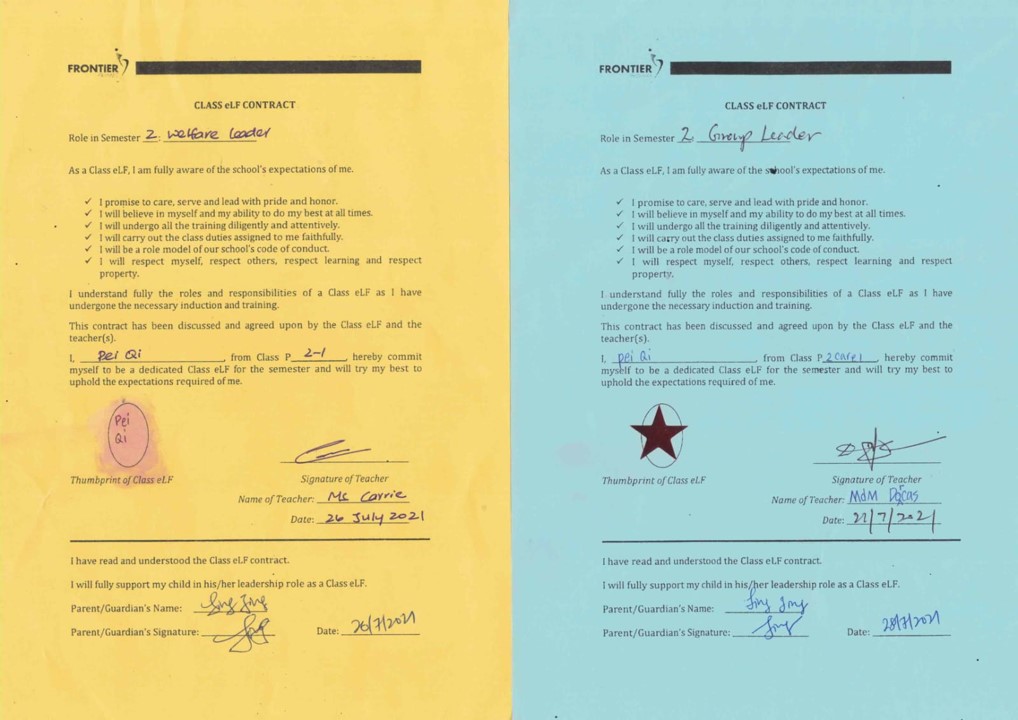 FRONTIER
CLASS eLF CONTRACT
Role in Semester 2: Welfare Leader
As a Class eLF, I am fully aware of the school's expectations of me.
✓ I promise to care, serve and lead with pride and honor.
✓ I will believe in myself and my ability to do my best at all times.
✓ I will undergo all the training diligently and attentively.
✓ I will carry out the class duties assigned to me faithfully.
✓ I will be a role model of our school's code of conduct.
✓ I will respect myself, respect others, respect learning and respect
property.
I understand fully the roles and responsibilities of a Class eLF as I have
undergone the necessary induction and training.
This contract has been discussed and agreed upon by the Class eLF and the
teacher(s).
I, Pei Qi, from Class P 2-1, hereby commit
myself to be a dedicated Class eLF for the semester and will try my best to
uphold the expectations required of me.
Pei
Qi
Thumbprint of Class eLF
Signature of Teacher
Name of Teacher: Ms Carrie
Date: 26 July 2021
I have read and understood the Class eLF contract.
I will fully support my child in his/her leadership role as a Class eLF.
Parent/Guardian's Name:
Parent/Guardian's Signature:
Date: 26/7/2021
FRONTIER
CLASS eLF CONTRACT
Role in Semester 2: Group Leader
As a Class eLF, I am fully aware of the school's expectations of me.
✓ I promise to care, serve and lead with pride and honor.
✓ I will believe in myself and my ability to do my best at all times.
✓ I will undergo all the training diligently and attentively.
✓ I will carry out the class duties assigned to me faithfully.
✓ I will be a role model of our school's code of conduct.
✓ I will respect myself, respect others, respect learning and respect
property.
I understand fully the roles and responsibilities of a Class eLF as I have
undergone the necessary induction and training.
This contract has been discussed and agreed upon by the Class eLF and the
teacher(s).
I, pei Qi, from Class P 2 care 1, hereby commit
myself to be a dedicated Class eLF for the semester and will try my best to
uphold the expectations required of me.
Thumbprint of Class eLF
Signature of Teacher
Name of Teacher: MdM
Date: 27/7/2021
I have read and understood the Class eLF contract.
I will fully support my child in his/her leadership role as a Class eLF.
Parent/Guardian's Name:
Parent/Guardian's Signature:
Date: 28/7/2021